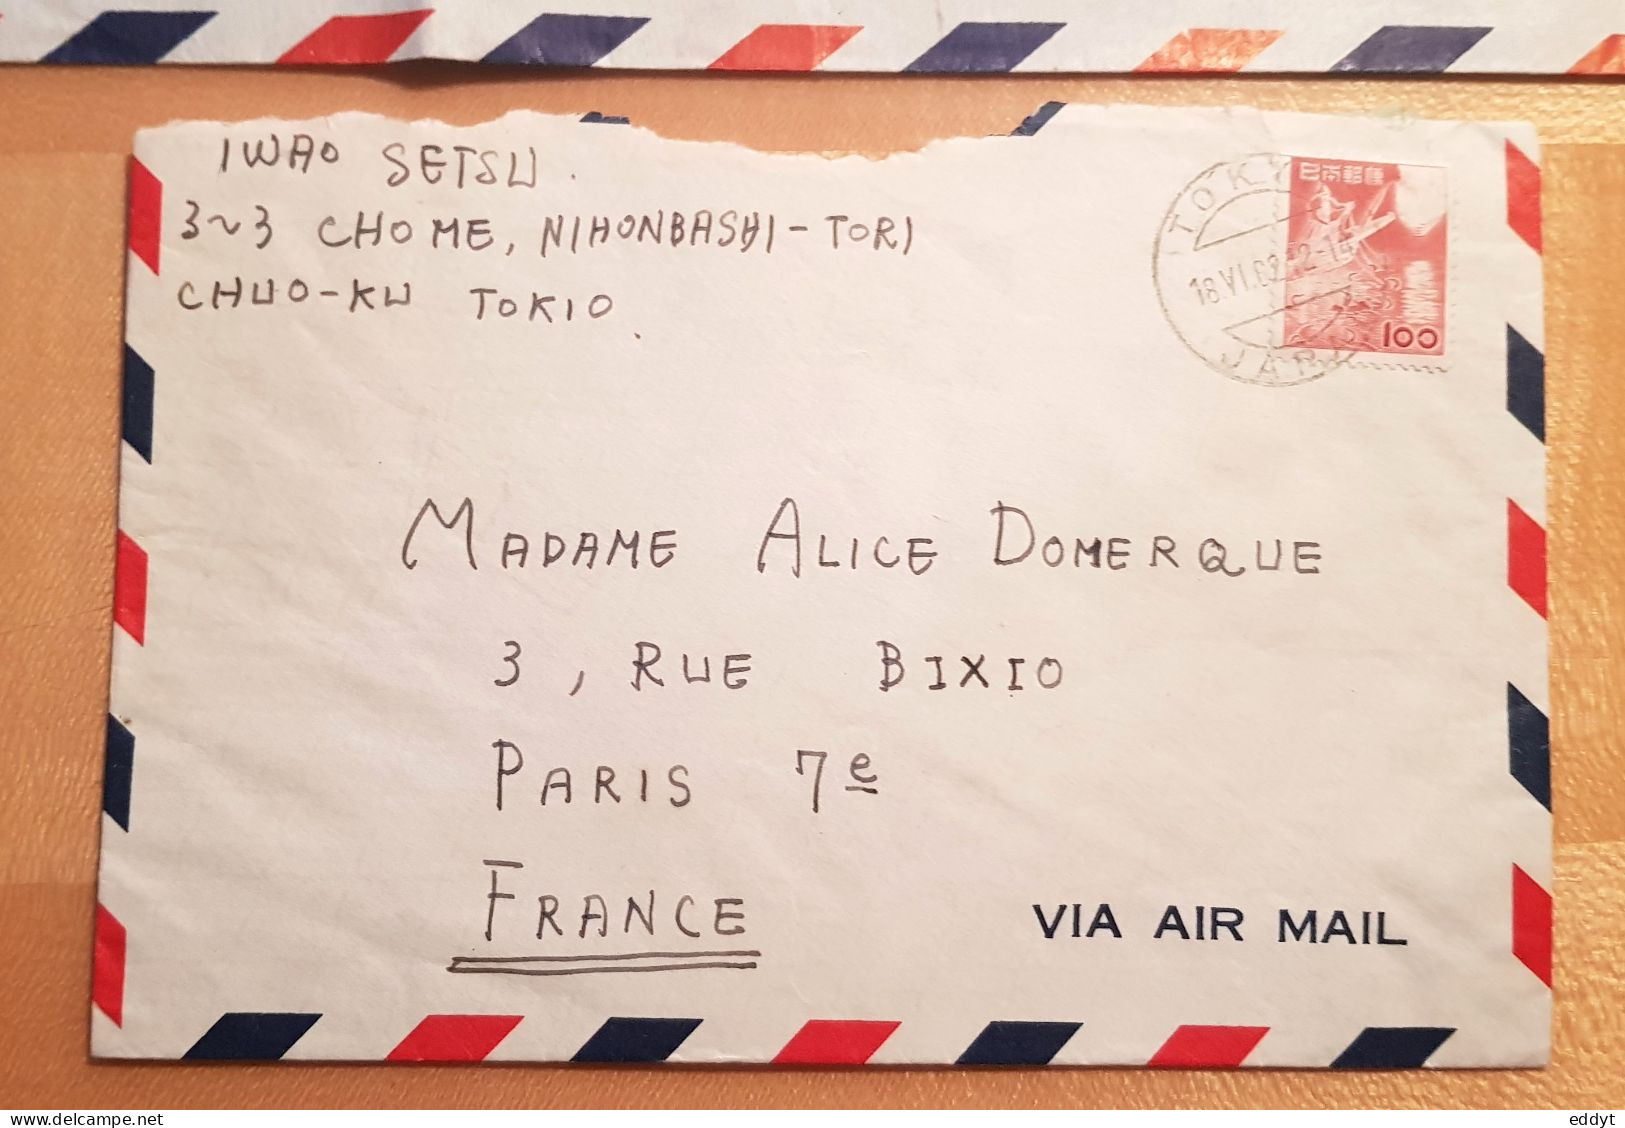 IWAO SETSU.
3~3 CHOME, NIHONBASHI-TORI
CHUO-KU TOKIO.
TOKY
18.VI.62.12-14
JAP
日本郵便
100
MADAME ALICE DOMERQUE
3, RUE BIXIO
PARIS 7e
FRANCE
VIA AIR MAIL
eddyt